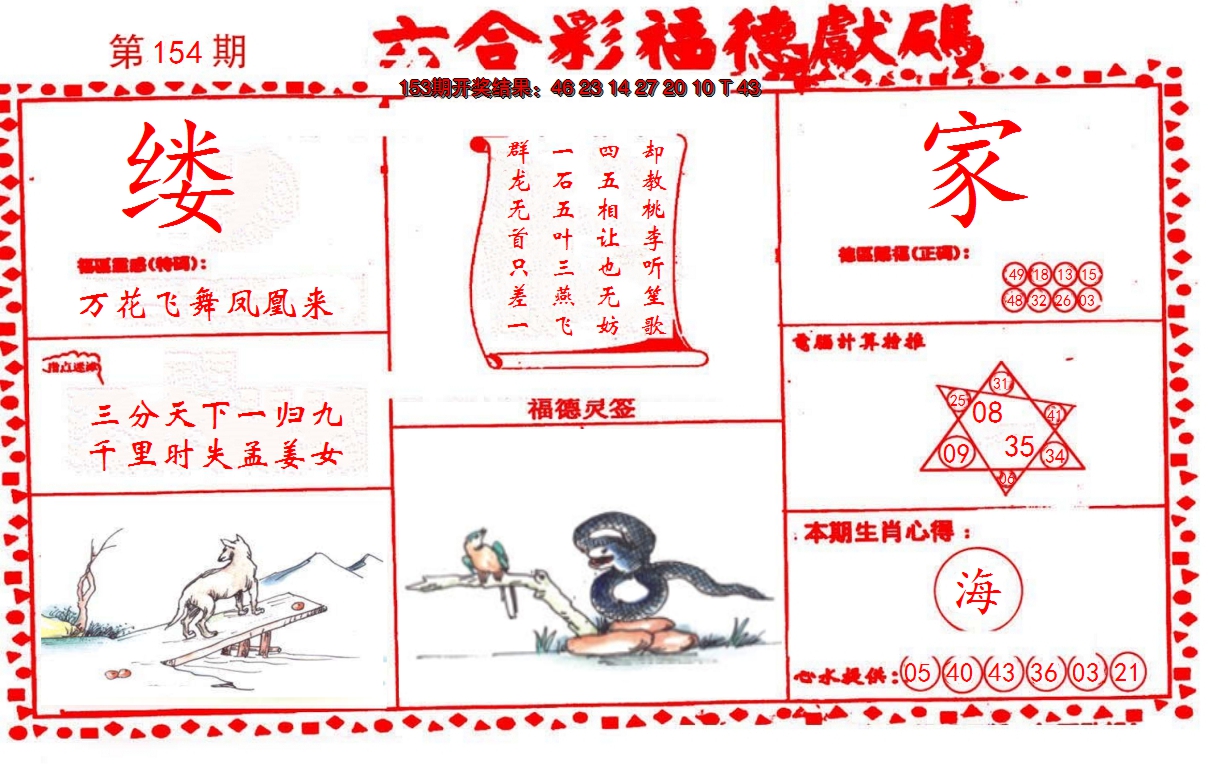 第154期
六合彩福德獻碼
153期开奖结果：46 23 14 27 20 10 T 43
缕
福區靈感(特碼)：
万花飞舞凤凰来
指点迷津
三分天下一归九
千里时失孟姜女
群龙无首只差一
一石五叶三燕飞
四五相让也无妨
却教桃李听笙歌
福德灵签
家
德區賜福(正碼)：
49 18 13 15
48 32 26 03
電腦計算抢推
31
25 08 41
09 35 34
06
本期生肖心得：
海
心水提供：05 40 43 36 03 21